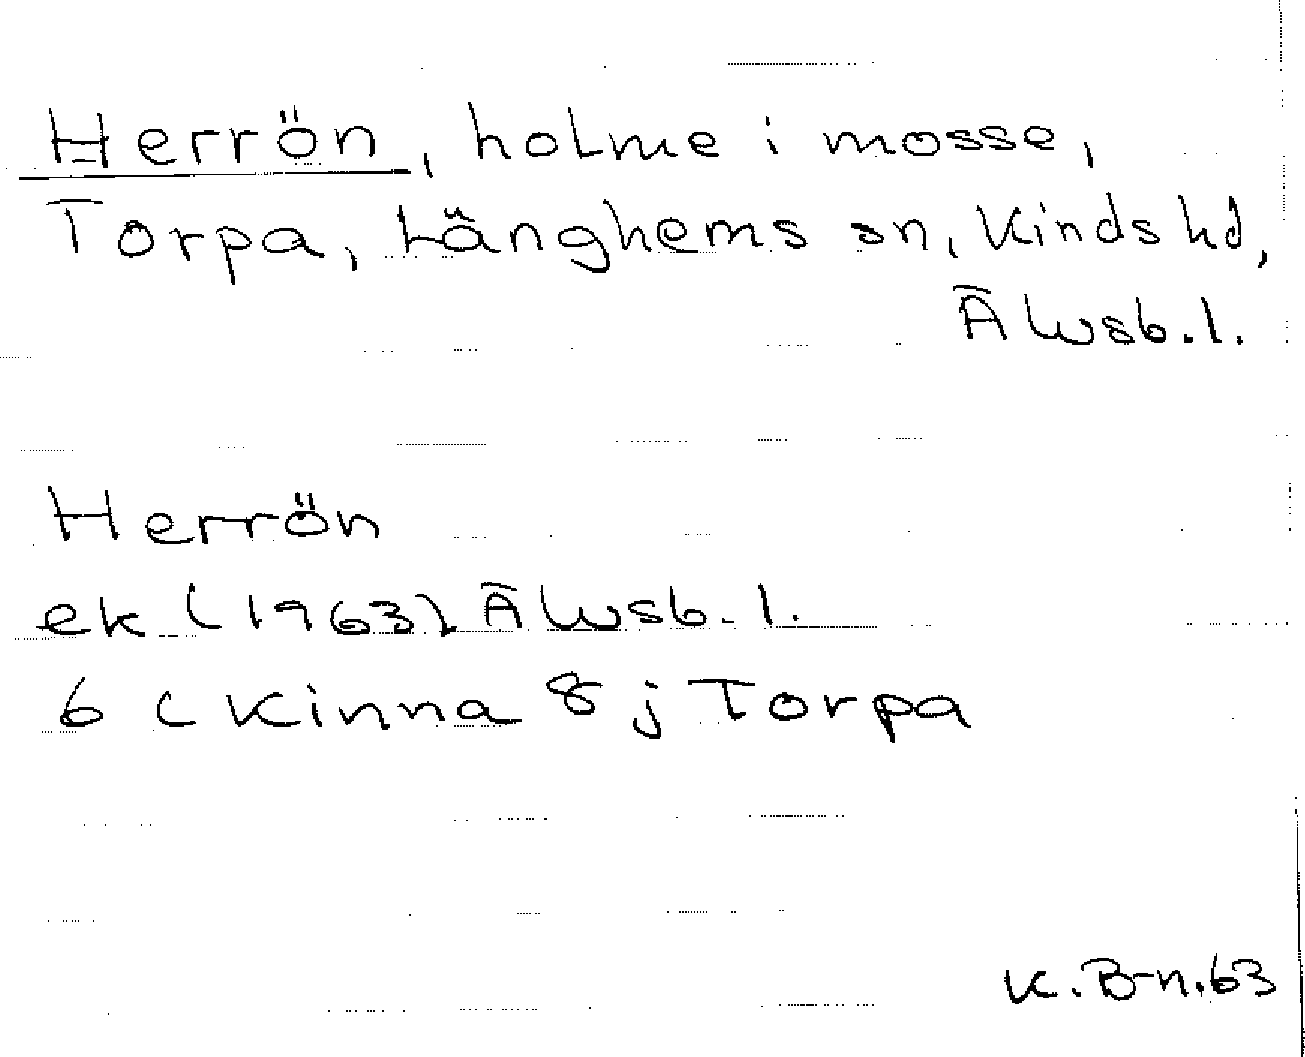 Herrön, holme i mosse,
Torpa, Länghems sn, Kinds hd,
Älvsb. l.
Herrön
ek (1963) Älvsb. l.
6 C Kinna 8 j Torpa
K. B-n. 63